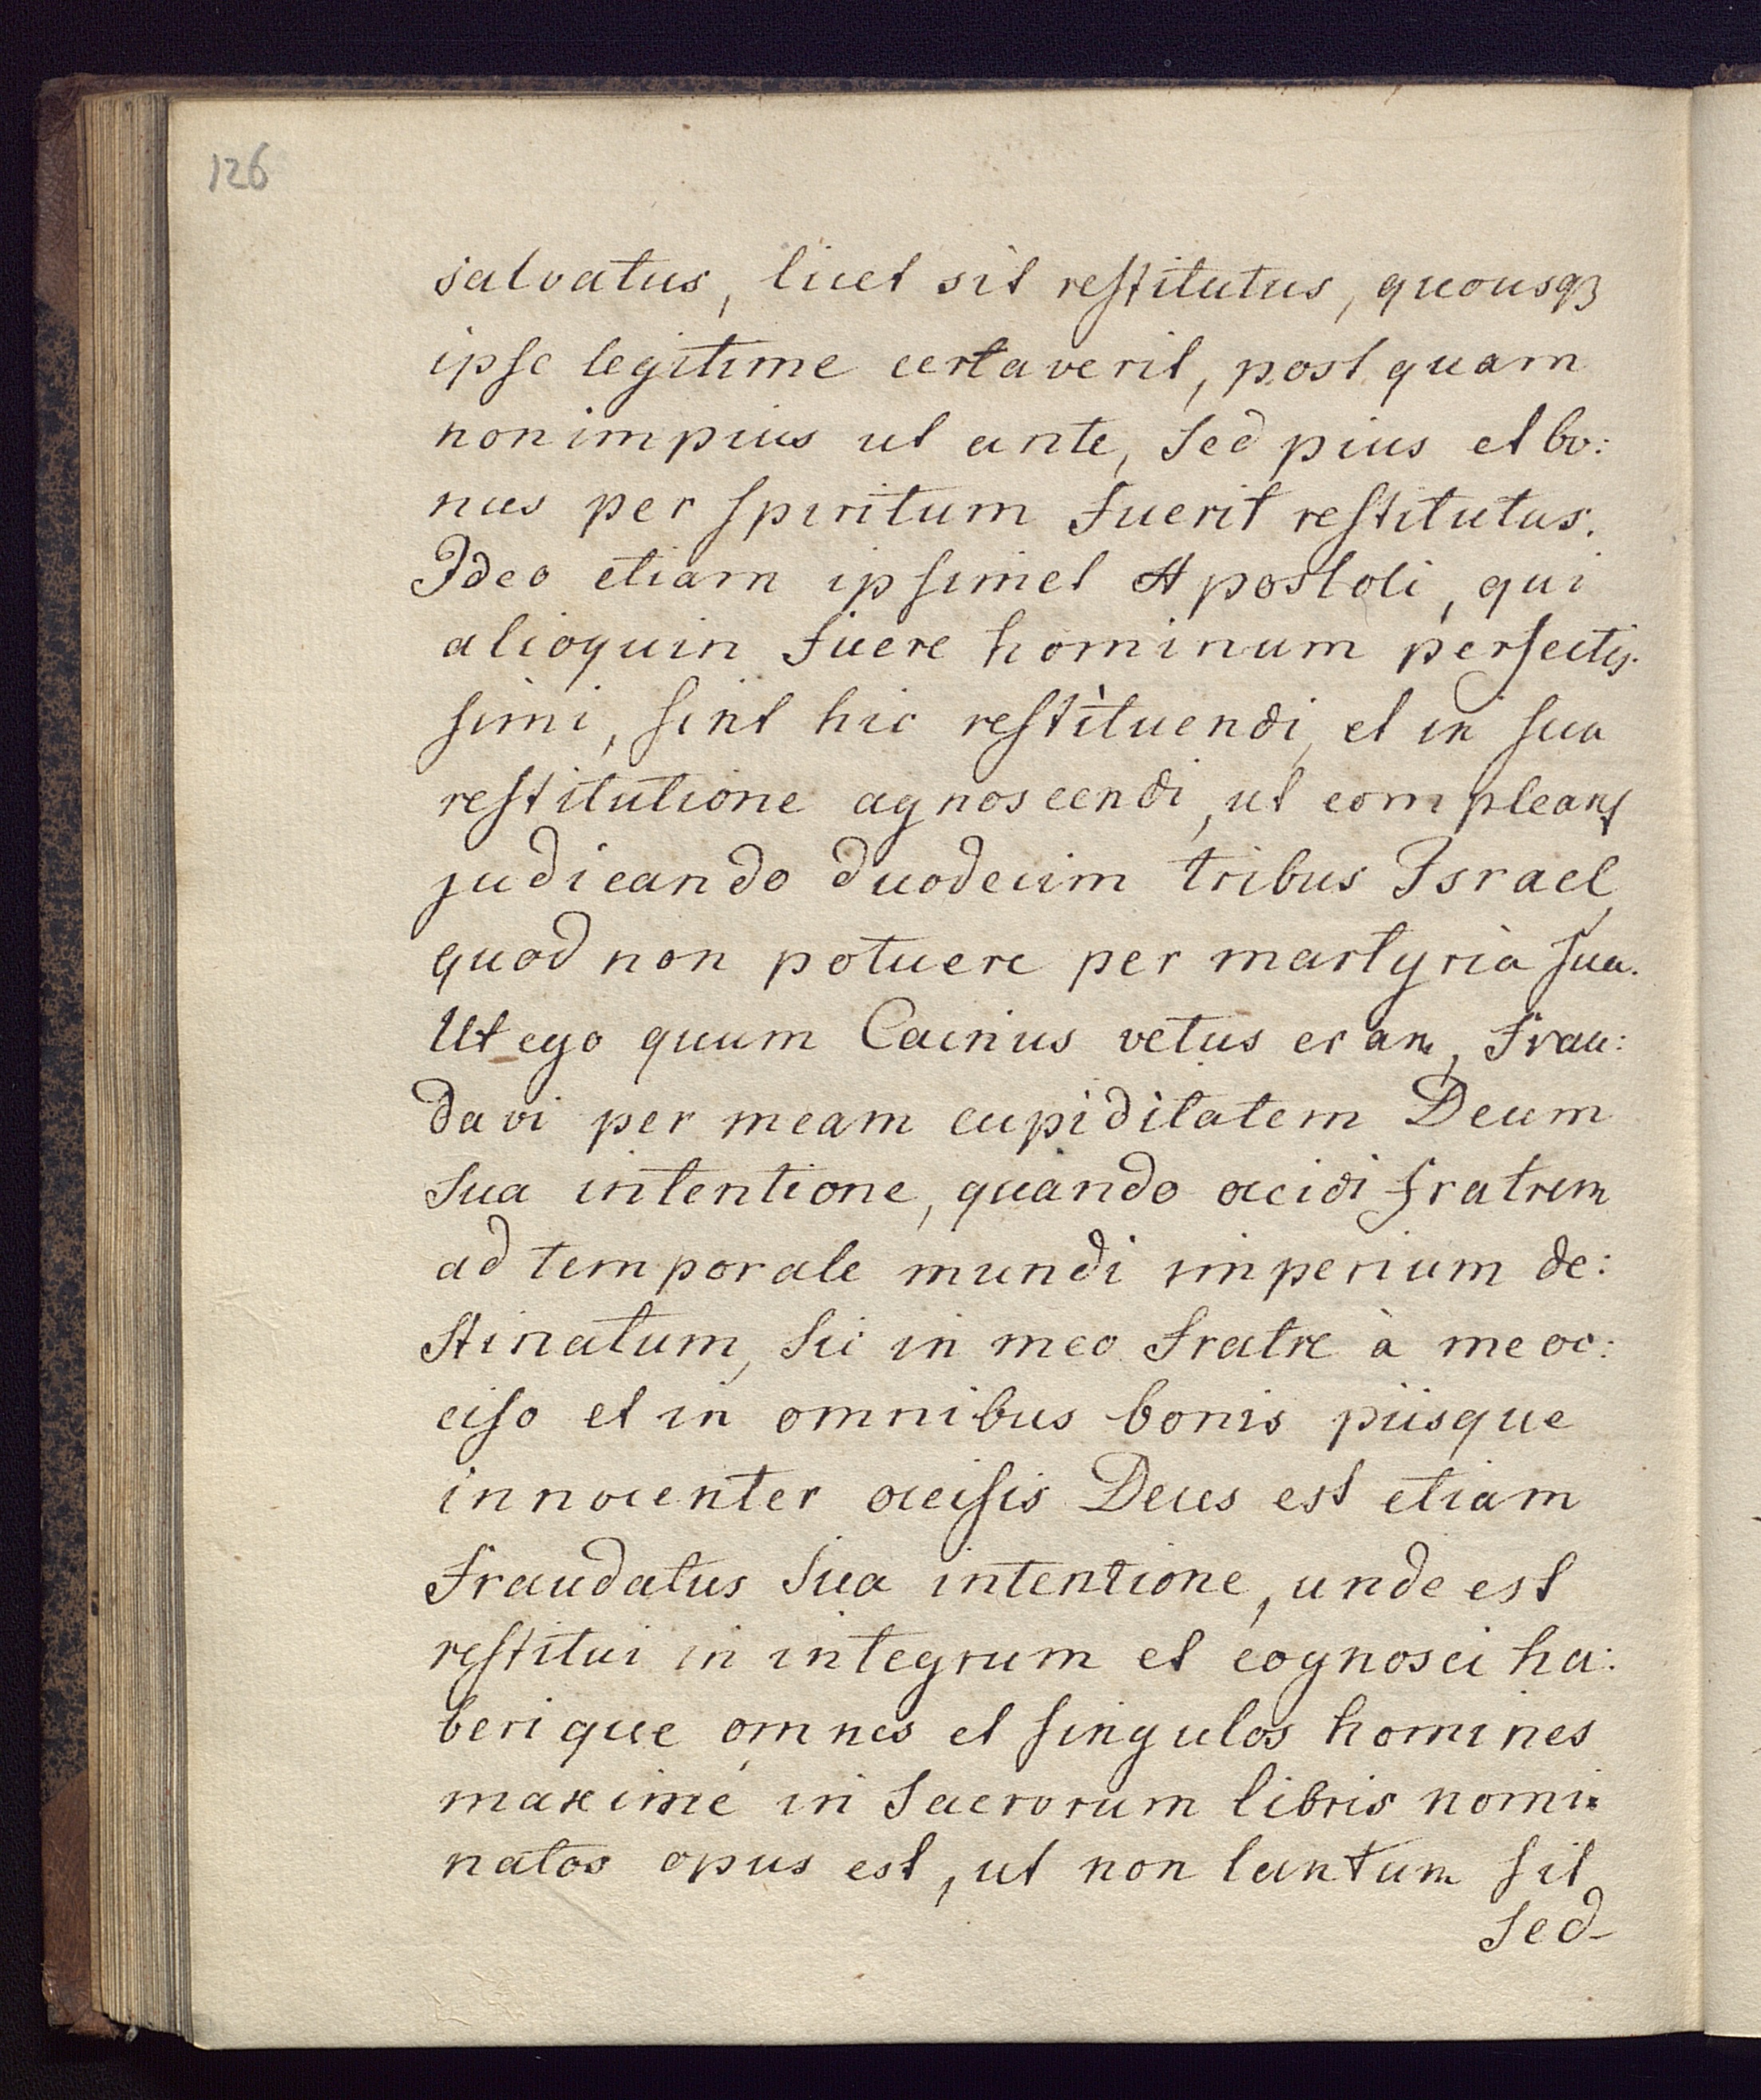 126
salvatus, licet sit reſtitutus, quousqꝫ
ipſe legitime certaverit, post quam
non impius ut ante, sed pius et bo:
nus per ſpiritum fuerit reſtitutus.
Ideo etiam ipſimet Apostoli, qui
alioquin fuere hominum perfectiſ:
ſimi, ſint hic reſtituendi, et in ſua
reſtitutione agnoscendi, ut compleant
judicando duodecim tribus Israel,
quod non potuere per martyria ſua.
Ut ego quum Cainus vetus eram, frau:
davi per meam cupiditatem Deum
sua intentione, quando occidi fratrem
ad temporale mundi imperium de:
stinatum, sic in meo fratre à me oc:
ciſo et in omnibus bonis piisque
innocenter occiſis Deus est etiam
fraudatus sua intentione, unde est
reſtitui in integrum et cognosci ha:
berique omnes et ſingulos homines
maxime in sacrorum libris nomi:
natos opus est, ut non tantum ſit
sed